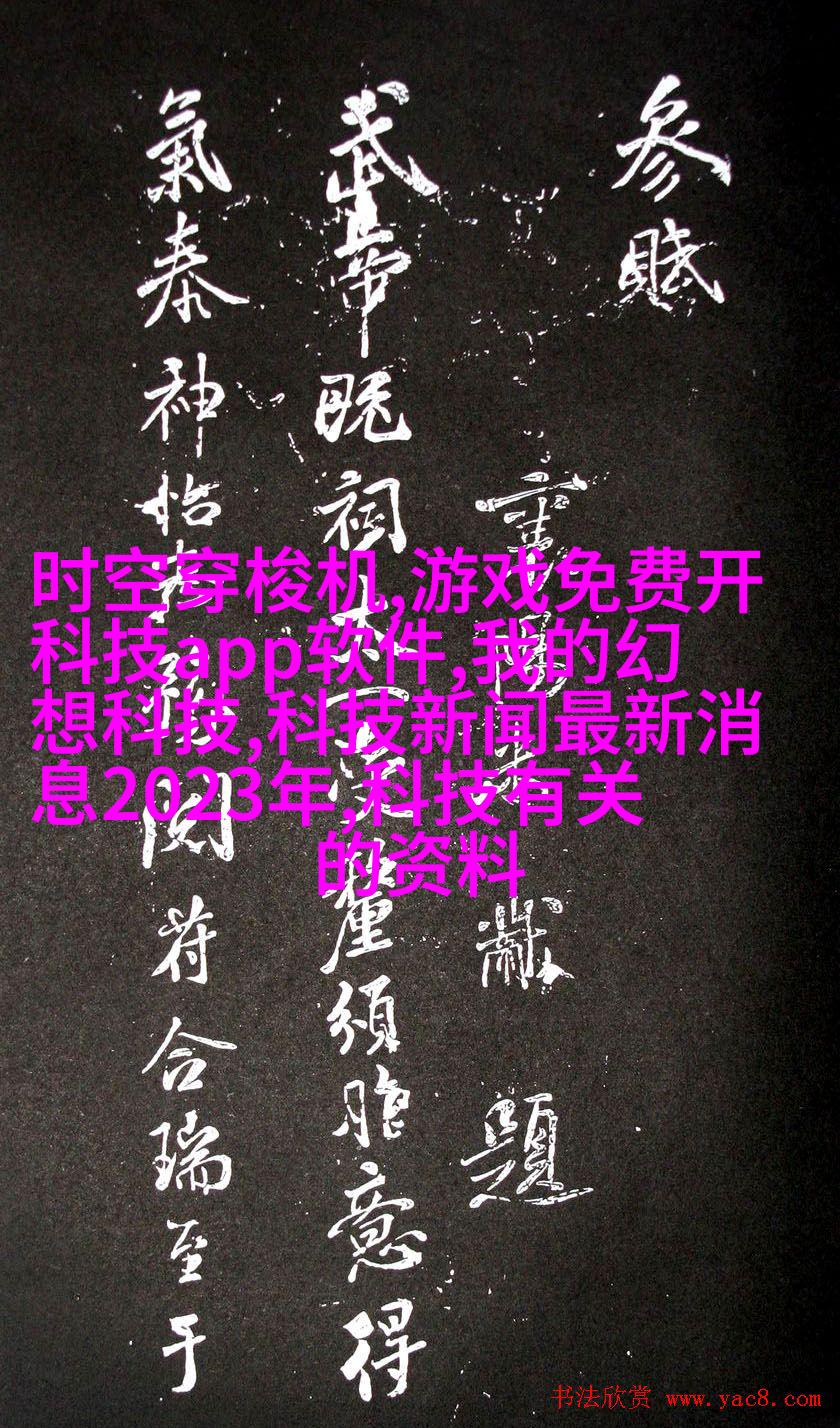 参賦
襄陽米黻
題
武帝既祠太一受釐頌胙意得
氣泰神怡
閱符合瑞至于
时空穿梭机,游戏免费开
科技app软件,我的幻
想科技,科技新闻最新消
息2023年,科技有关
的资料
书法欣赏 www.yac8.com